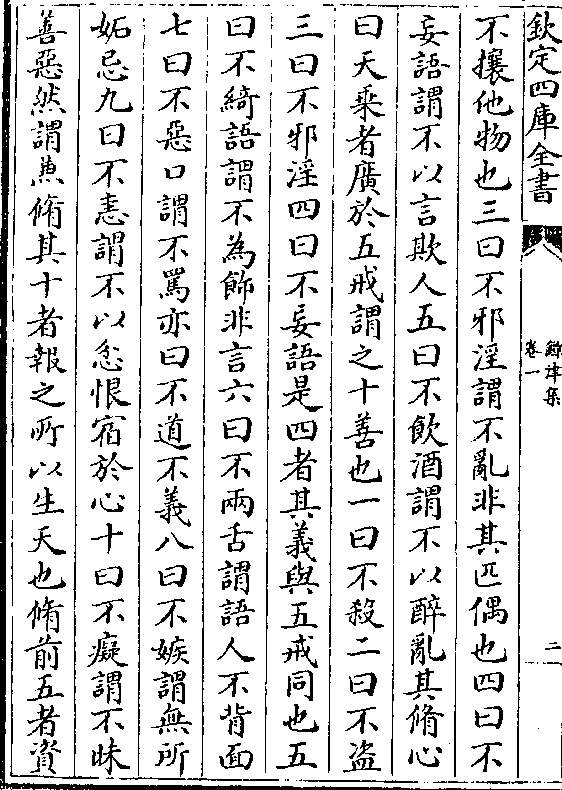 欽定四庫全書
鐔津集
卷一
二
不攘他物也三曰不邪淫謂不亂非其匹偶也四曰不
妄語謂不以言欺人五曰不飲酒謂不以醉亂其脩心
曰天乘者廣於五戒謂之十善也一曰不殺二曰不盗
三曰不邪淫四曰不妄語是四者其義與五戒同也五
曰不綺語謂不為飾非言六曰不兩舌謂語人不背面
七曰不惡口謂不罵亦曰不道不義八曰不嫉謂無所
妬忌九曰不恚謂不以忿恨宿於心十曰不癡謂不昧
善惡然謂兼脩其十者報之所以生天也脩前五者資